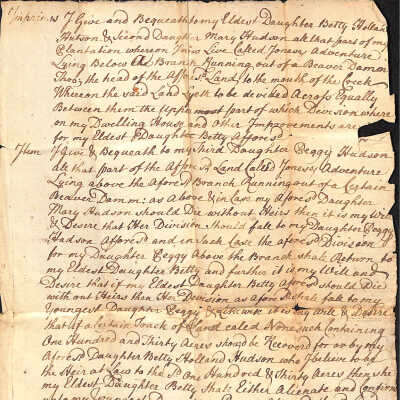 Imprimis I Give and Bequeath to my Eldest Daughter Betty Holland
Hutson & Second Daughter Mary Hudson all that part of my
Plantation whereon I now Live Called Joneses Adventure
Lying Below the Branch Running out of a Beaver Damm
Thro. the head of the Afors. Land, to the mouth of the Creek
Whereon the said Land Lyeth to be devided Across Equally
Between them the upper most part of which Devision where
on my Dwelling House and Other Improvements are
for my Eldest Daughter Betty Aforesd.
Item I Give & Bequeath to my Third Daughter Peggy Hudson
all that part of the Afores.d Land Called Joneses Adventure
Lying above the Aforesd. Branch Running out of a Certain
Beaver Damm: as Above & in Case my Aforesd. Daughter
Mary Hudson should Die without Heirs then it is my Will
& Desire that Her Division should fall to my Daughter Peggy
Hudson Aforesd. and in Such Case the aforesd. Division
for my Daughter Peggy Above the Branch shall Return to
my Eldest Daughter Betty and further it is my Will and
Desire that if my Eldest Daughter Betty Aforesd should Die
with out Heirs then Her Devision as Afore shall fall to my
Youngest Daughter Peggy & Likewise it is my Will & Desire
that if a Certain Track of Land called None Such Containing
One Hundred and Thirty Acres should be Recoverd for or by my
Aforesd Daughter Betty Holland Hudson who I believe to be
the Heir at Law to the Sd. One Hundred & Thirty Acres then she
my Eldest Daughter Betty shall Either Alienate and Confirm